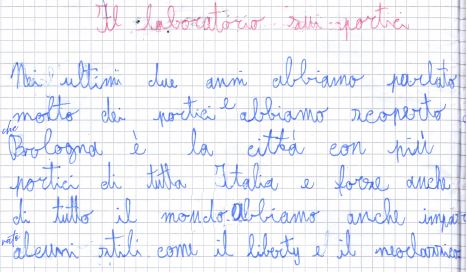 Il laboratorio sui portici
Nei ultimi due anni abbiamo parlato
molto dei portici e abbiamo scoperto
che Bologna è la città con più
portici di tutta Italia e forse anche
di tutto il mondo. Abbiamo anche impa
rato alcuni stili come il liberty e il neoclassico